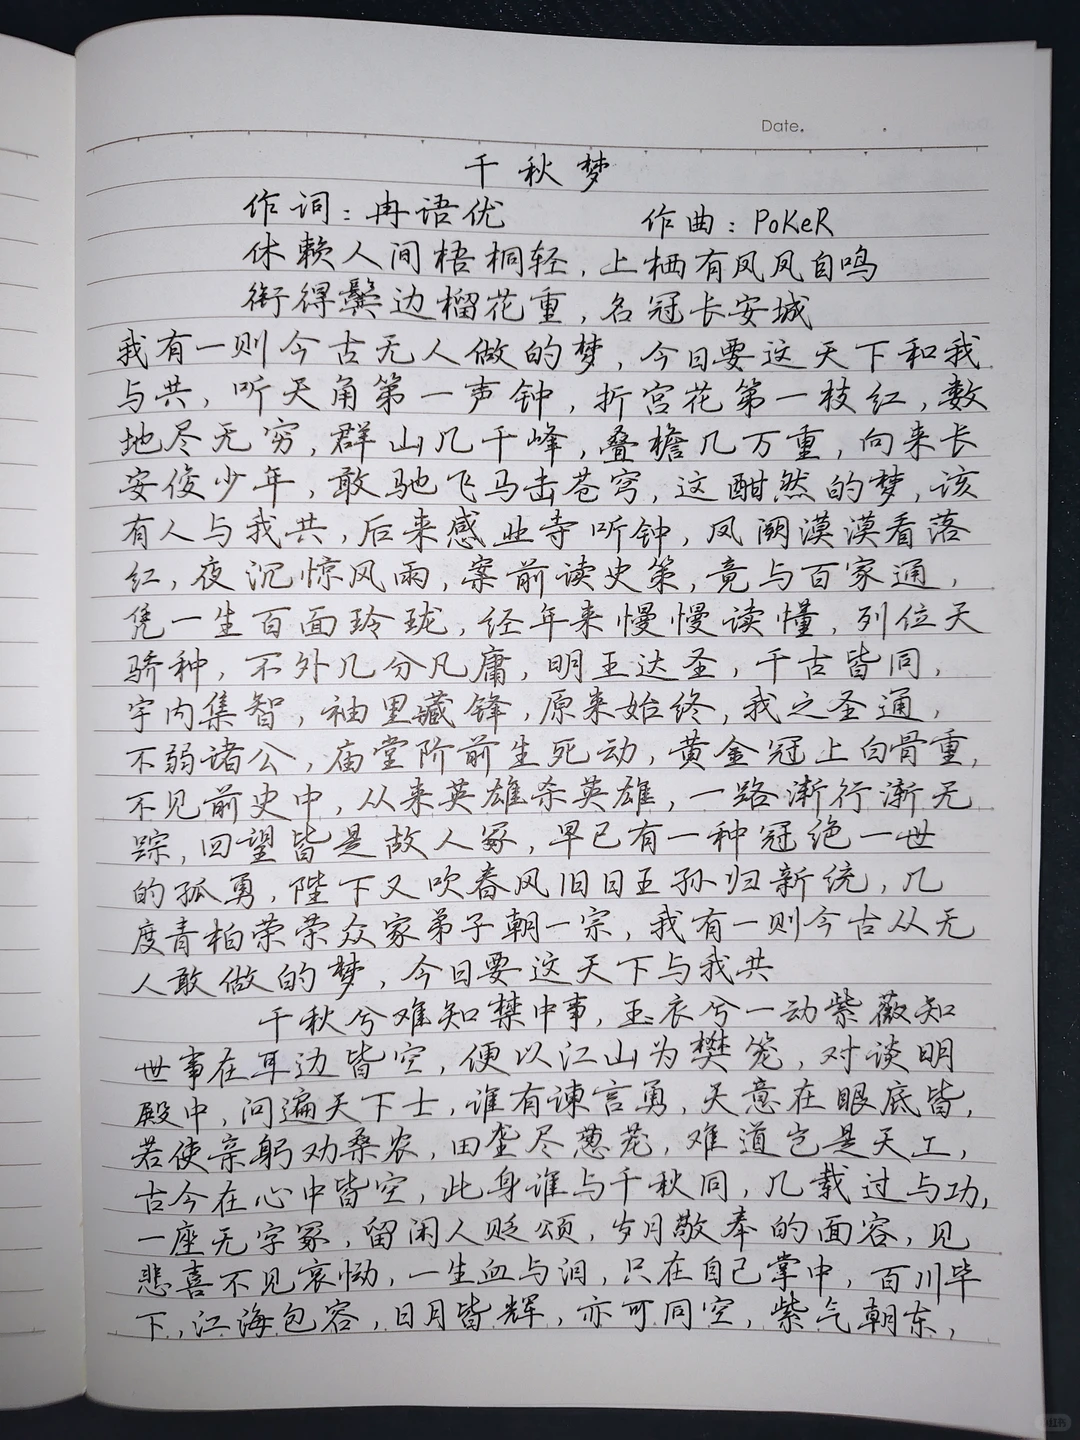 Date.
千秋梦
作词：冉语优 作曲：PoKeR
休赖人间梧桐轻，上栖有凤凤自鸣
衔得鬓边榴花重，名冠长安城
我有一则今古无人做的梦，今日要这天下和我
与共，听天角第一声钟，折宫花第一枝红，数
地尽无穷，群山几千峰，叠檐几万重，向来长
安俊少年，敢驰飞马击苍穹，这酣然的梦，该
有人与我共，后来感业寺听钟，凤阙漠漠看落
红，夜沉惊风雨，案前读史策，竟与百家通，
凭一生百面玲珑，经年来慢慢读懂，列位天
骄种，不外几分凡庸，明王达圣，千古皆同，
宇内集智，袖里藏锋，原来始终，我之圣通，
不弱诸公，庙堂阶前生死动，黄金冠上白骨重，
不见前史中，从来英雄杀英雄，一路渐行渐无
踪，回望皆是故人冢，早已有一种冠绝一世
的孤勇，陛下又吹春风旧日王孙归新统，几
度青柏荣荣众家弟子朝一宗，我有一则今古从无
人敢做的梦，今日要这天下与我共
千秋兮难知禁中事，玉衣兮一动紫薇知
世事在耳边皆空，便以江山为樊笼，对谈明
殿中，问遍天下士，谁有谏言勇，天意在眼底皆，
若使亲躬劝桑农，田垄尽葱茏，难道岂是天工，
古今在心中皆空，此身谁与千秋同，几载过与功，
一座无字冢，留闲人贬颂，岁月敬奉的面容，见
悲喜不见哀恸，一生血与泪，只在自己掌中，百川毕
下，江海包容，日月皆辉，亦可同空，紫气朝东，